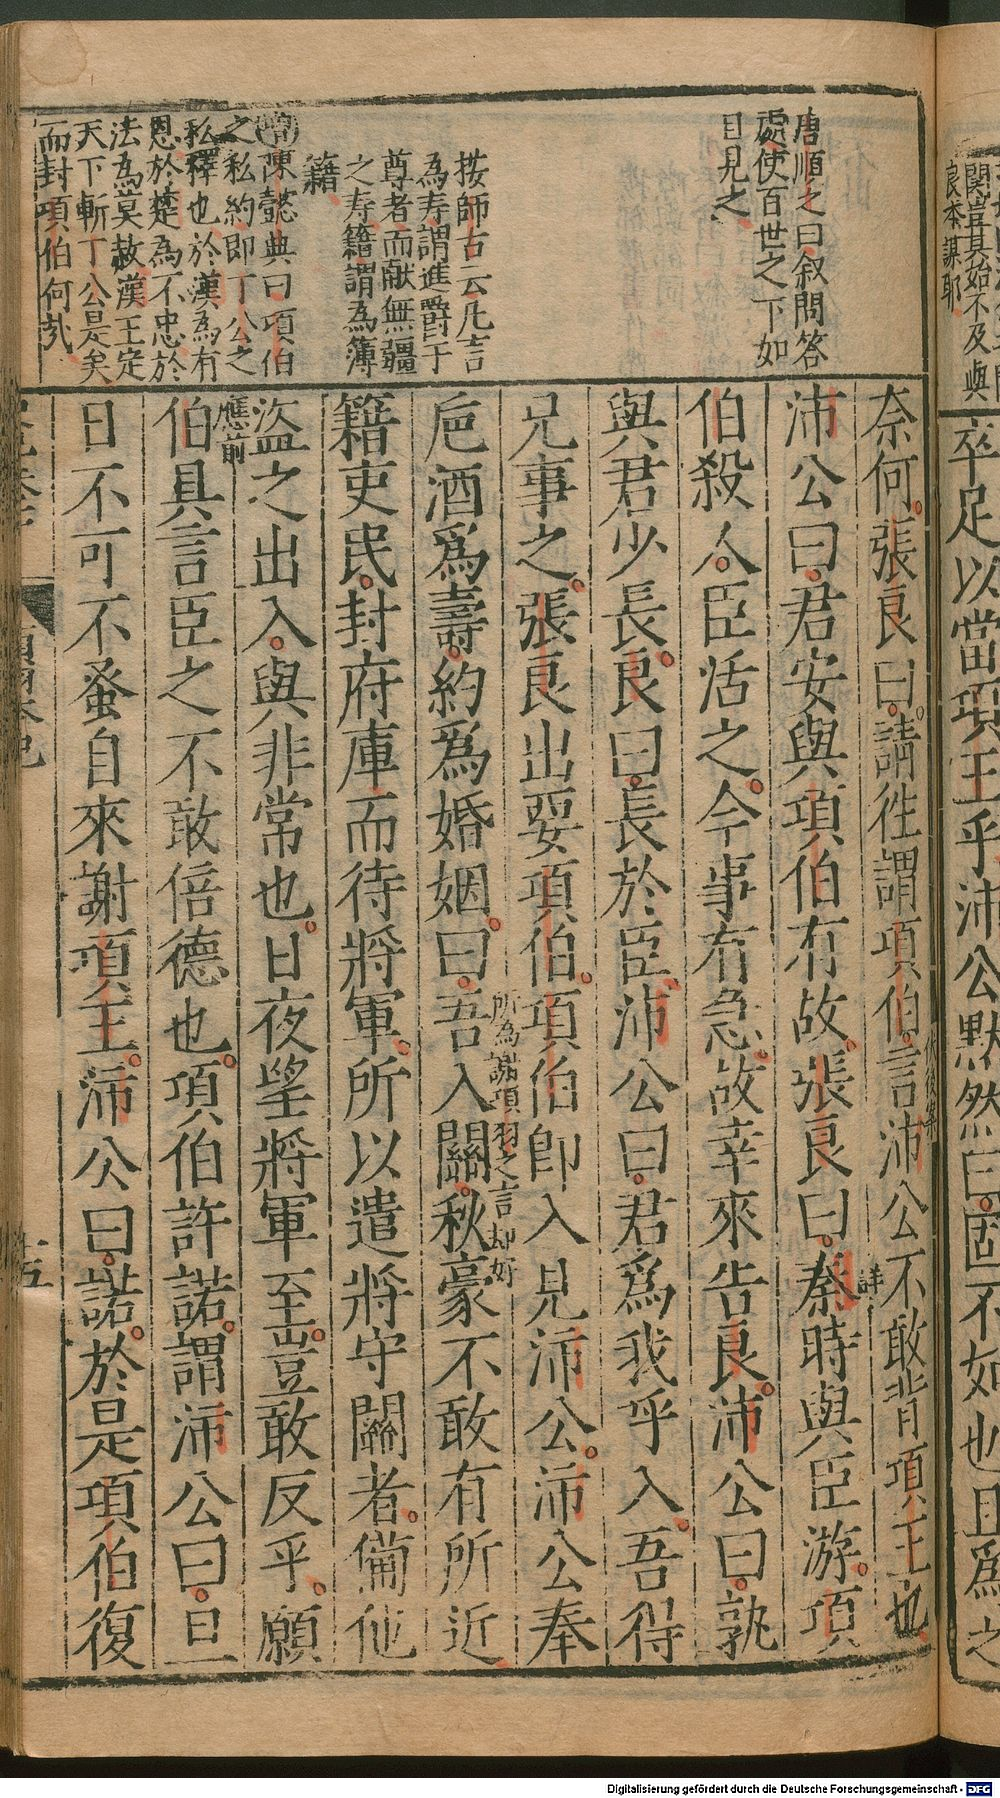 卒足以當項王乎沛公默然曰固不如也且爲之
關豈其始不及與
良本謀耶
唐順之曰叙問答
處使百世之下如
目見之
按師古云凡言
為寿謂進爵于
尊者而献無疆
之寿籍謂為簿
籍
增陳懿典曰項伯
之私約即丁公之
私釋也於漢為有
恩於楚為不忠於
法為莫赦漢王定
天下斬丁公是矣
而封項伯何㢤
奈何張良曰請徃謂項伯言沛公不敢背項王也
伏後案
沛公曰君安與項伯有故張良曰秦時與臣游項
詳
伯殺人臣活之今事有急故幸來告良沛公曰孰
與君少長良曰長於臣沛公曰君爲我呼入吾得
兄事之張良出要項伯項伯卽入見沛公沛公奉
巵酒爲壽約爲婚姻曰吾入關秋豪不敢有所近
所為謝項羽之言却好
籍吏民封府庫而待將軍所以遣將守關者備他
盜之出入與非常也日夜望將軍至豈敢反乎願
應前
伯具言臣之不敢倍德也項伯許諾謂沛公曰旦
日不可不蚤自來謝項王沛公曰諾於是項伯復
項羽本紀
十五
Digitalisierung gefördert durch die Deutsche Forschungsgemeinschaft - DFG